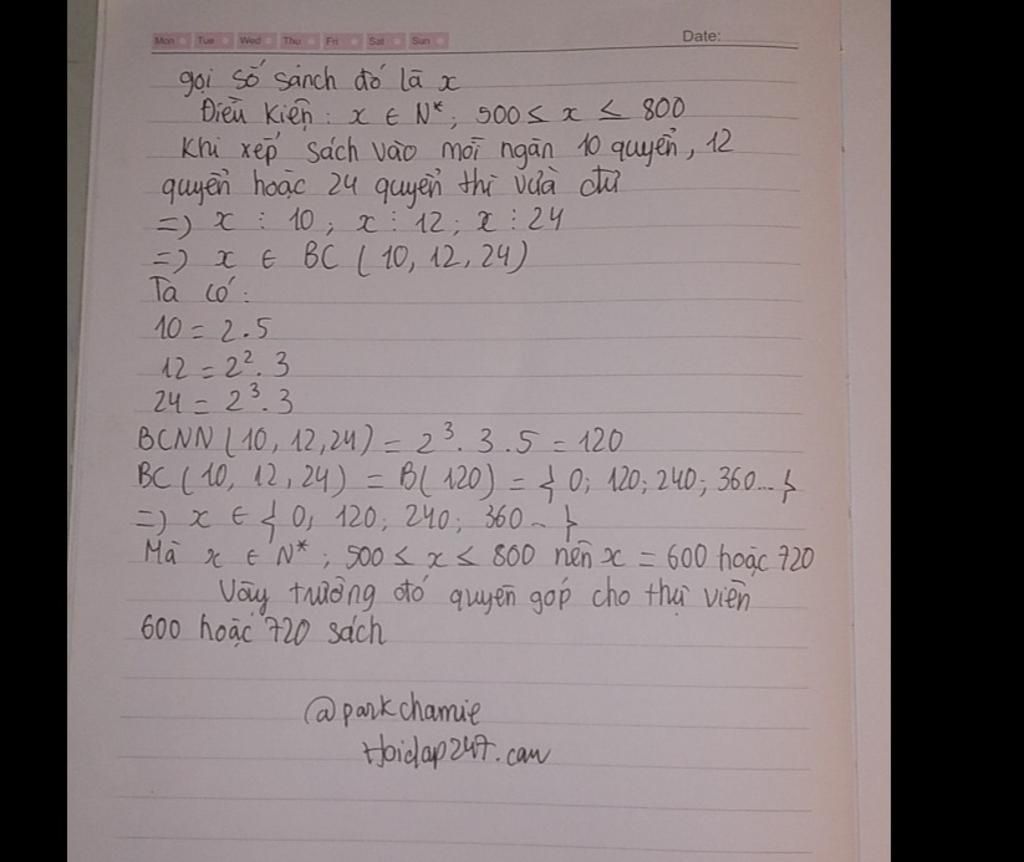 Mon Tue Wed Thu Fri Sat Sun Date:
gọi số sánch đó là x
Điều kiện: x ∈ N*; 500 ≤ x ≤ 800
Khi xếp sách vào mỗi ngăn 10 quyển, 12
quyển hoặc 24 quyển thì vừa đủ
=) x ⋮ 10; x ⋮ 12; x ⋮ 24
=) x ∈ BC (10, 12, 24)
Ta có:
10 = 2.5
12 = 2². 3
24 = 2³. 3
BCNN (10, 12, 24) = 2³. 3. 5 = 120
BC (10, 12, 24) = B(120) = { 0; 120; 240; 360... }
=) x ∈ { 0; 120; 240; 360... }
Mà x ∈ N*; 500 ≤ x ≤ 800 nên x = 600 hoặc 720
Vậy trường đó quyên góp cho thư viên
600 hoặc 720 sách
@parkchamie
Hoidap247.com